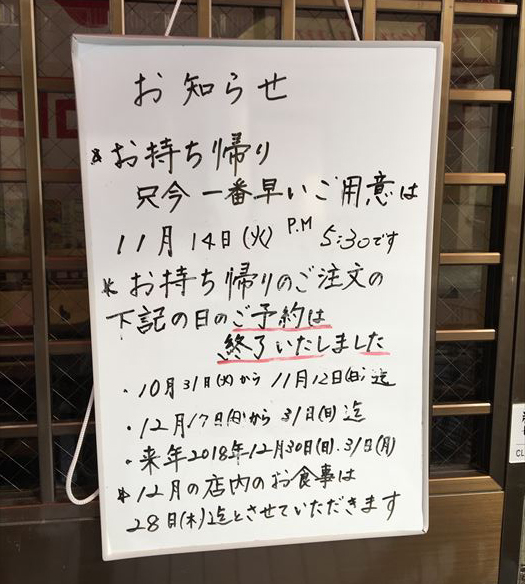 お知らせ
*お持ち帰り
只今一番早いご用意は
11月14日(火) P.M 5:30です
*お持ち帰りのご注文の
下記の日のご予約は
終了いたしました
・10月31日(火)から11月12日(日)迄
・12月17日(日)から31日(日)迄
・来年2018年12月30日(日)・31日(月)
*12月の店内のお食事は
28日(木)迄とさせていただきます